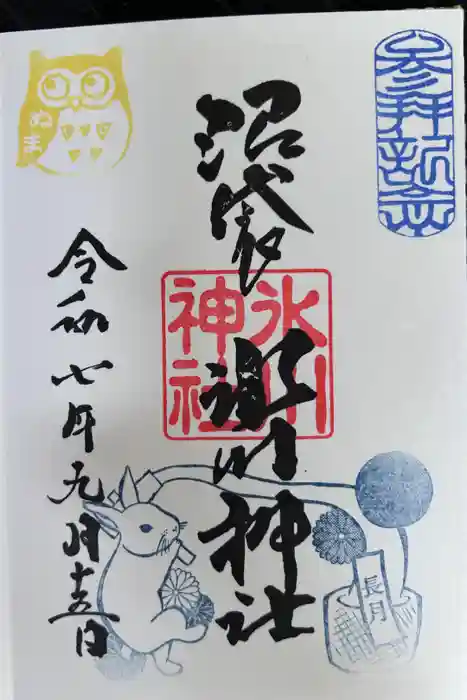 参拝記念
沼袋
氷川神社
氷川
神社
長月
ぬま
令和七年九月十五日